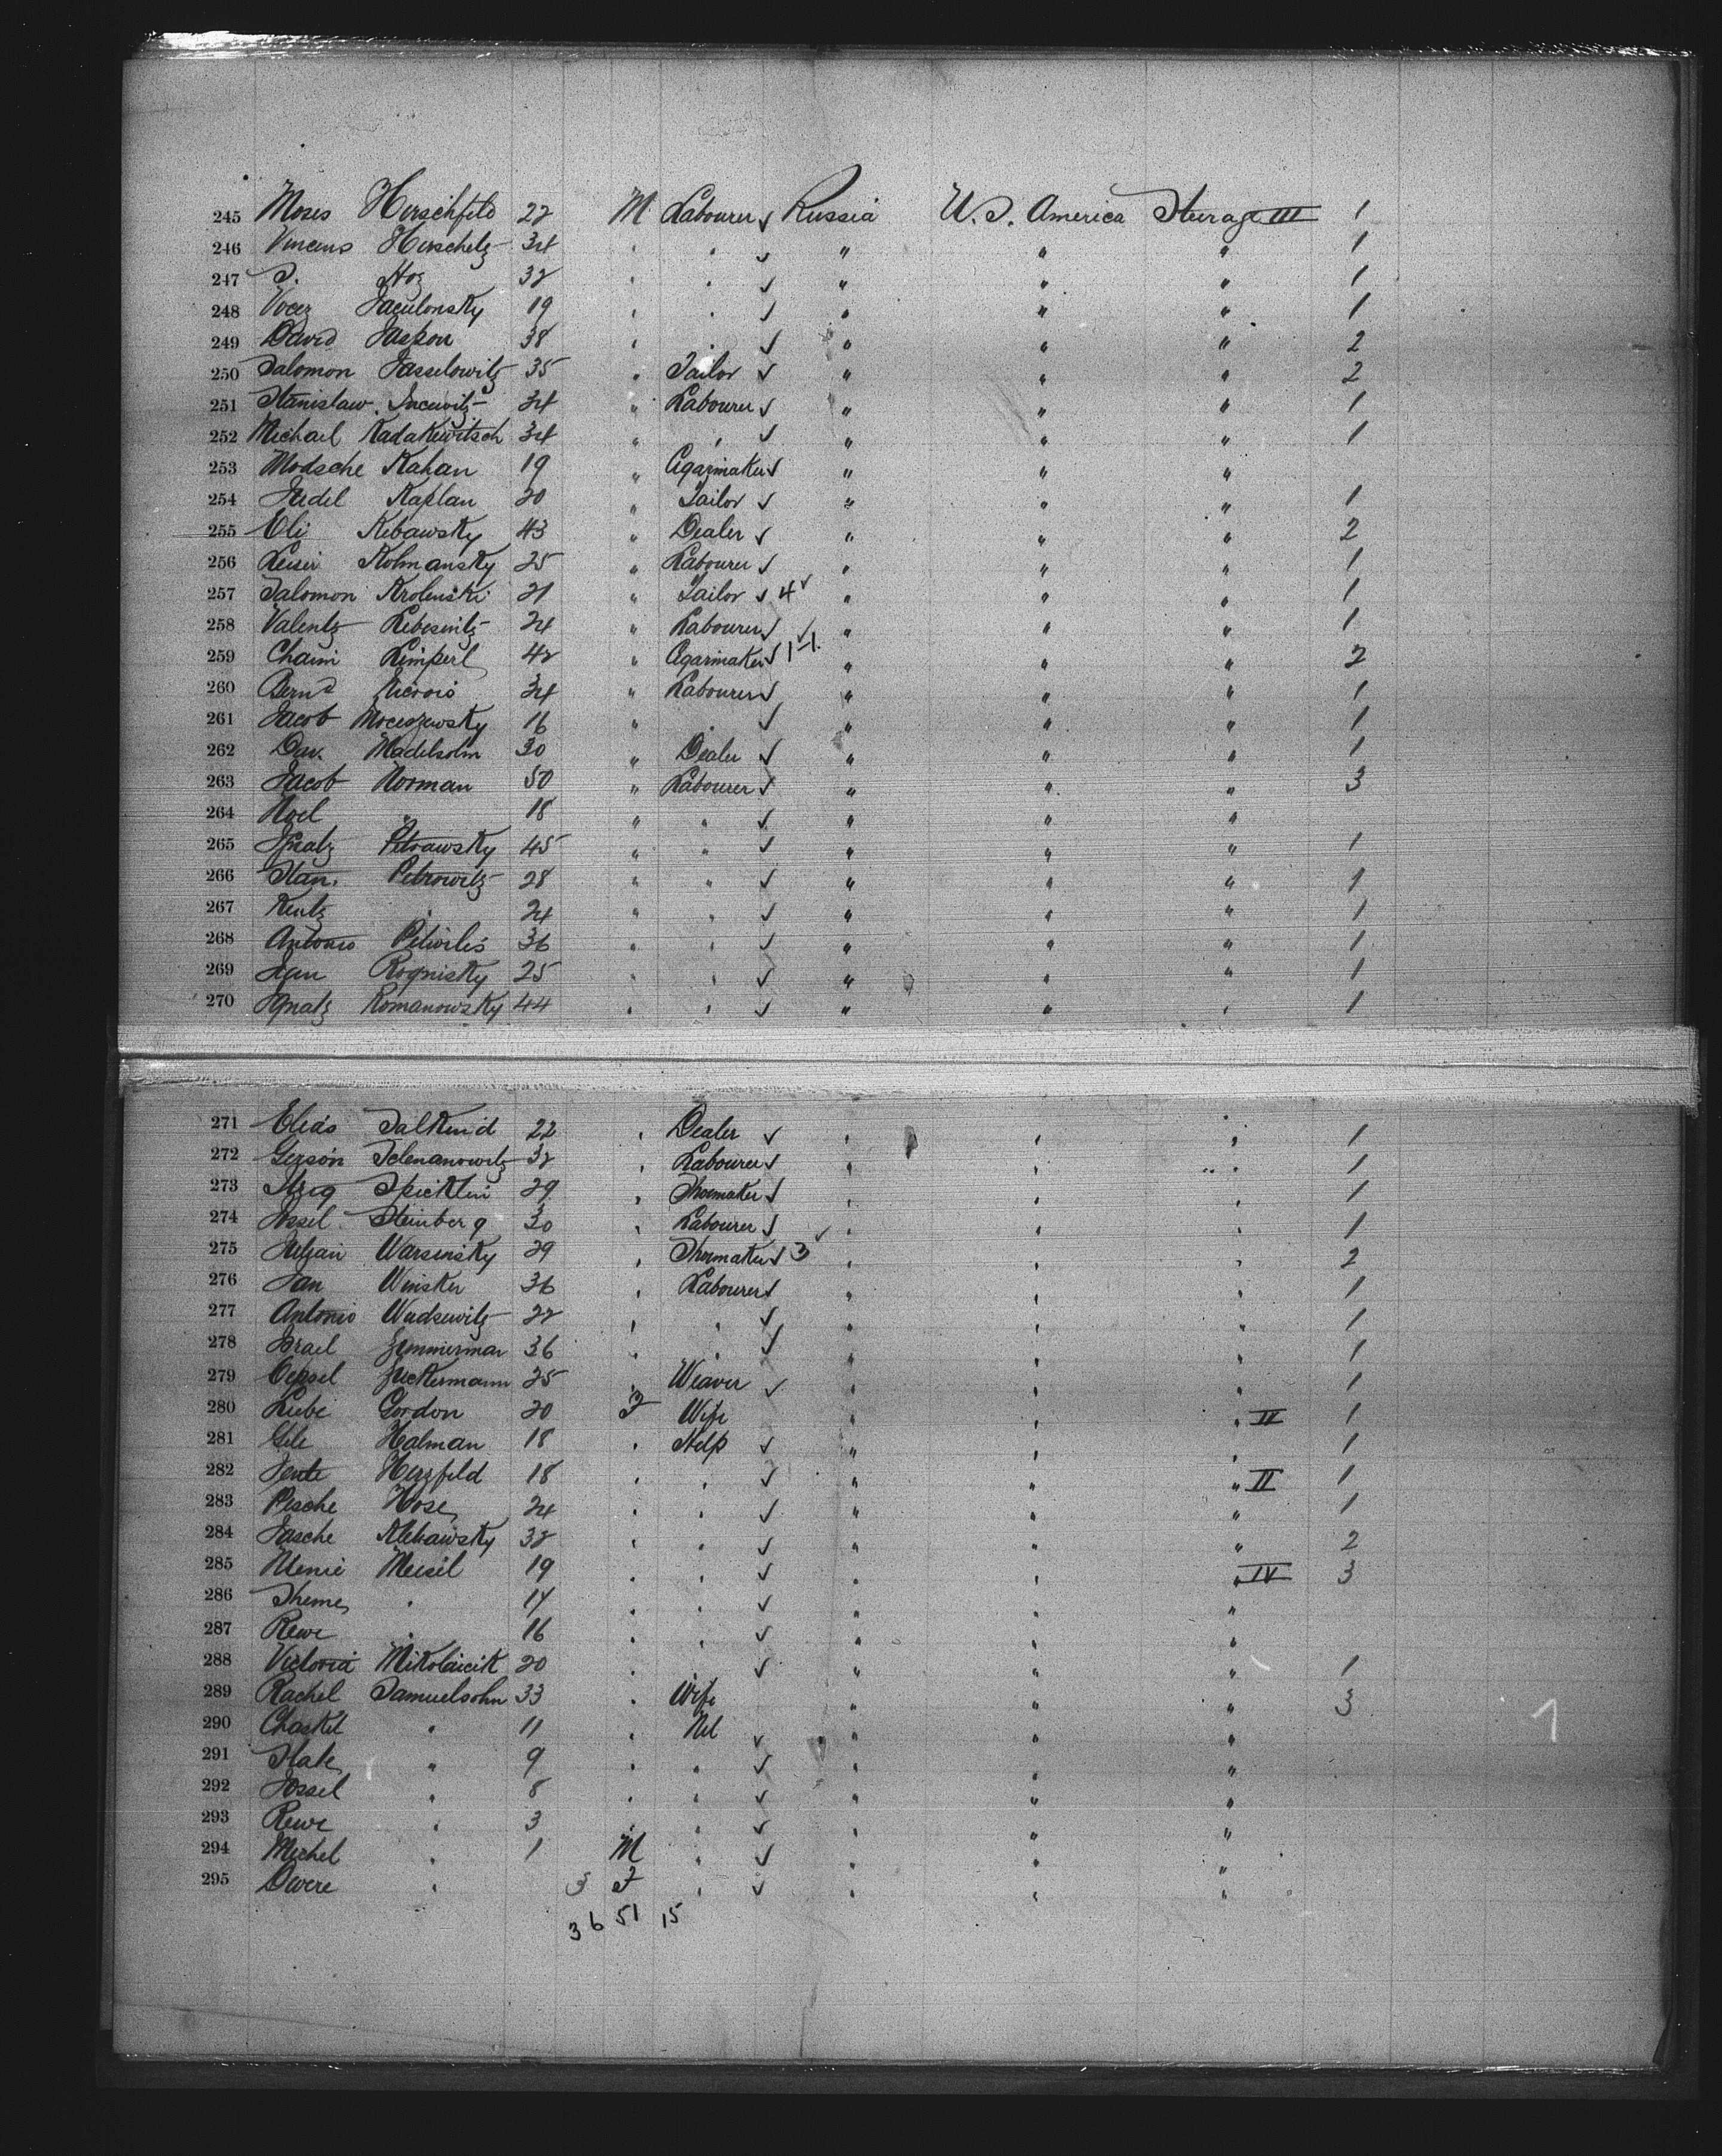 245 Moses Herschfeld 22 M Labourer ✓ Russia U.S. America Steerage III 1
246 Vincens Herschelz 34 " " ✓ " " " 1
247 S. Hoz 32 " " ✓ " " " 1
248 Jaculonsky 19 " " ✓ " " " 1
249 David Jaskon 38 " " ✓ " " " 2
250 Salomon Jasselowitz 35 " Tailor ✓ " " " 2
251 Stanislaw 34 " Labourer ✓ " " " 1
252 Michael Kadakewitsch 34 " " ✓ " " " 1
253 Modsche Kahan 19 " Cigarmaker ✓ " " "
254 Judel Kaplan 20 " Tailor ✓ " " " 1
255 Eli Kebawsky 43 " Dealer ✓ " " " 2
256 Leiser Kolmansky 25 " Labourer ✓ " " " 1
257 Salomon Krolenski 21 " Tailor ✓ 4 ✓ " " " 1
258 Valentz 24 " Labourer ✓ ✓ " " " 1
259 Chaim Limperl 42 " Cigarmaker ✓ 1-1. " " " 2
260 Bernd 34 " Labourer ✓ " " " 1
261 Jacob Moceszewsky 16 " " ✓ " " " 1
262 Dav. Madelsolm 30 " Dealer ✓ " " " 1
263 Jacob Norman 50 " Labourer ✓ " " " 3
264 Noel " 18 " " ✓ " " "
265 Ignatz Petrawsky 45 " " ✓ " " " 1
266 Stan. Petrowitz 28 " " ✓ " " " 1
267 Kentz " 24 " " ✓ " " " 1
268 Antonio 36 " " ✓ " " " 1
269 Jan Rognisky 25 " " ✓ " " " 1
270 Ignatz Romanowsky 44 " " ✓ " " " 1
271 Elias Salkind 22 " Dealer ✓ " " " 1
272 Gerson Selmanowitz 32 " Labourer ✓ " " " 1
273 Spicklin 29 " Shoemaker ✓ " " " 1
274 Jossel Steinberg 30 " Labourer ✓ ✓ " " " 1
275 Julian Warsensky 29 " Shoemaker ✓ 3 " " " 2
276 Jan Winsker 36 " Labourer ✓ " " " 1
277 Antonio Wadsewitz 22 " " ✓ " " " 1
278 Israel Zimmerman 36 " " ✓ " " " 1
279 Zuckermann 25 " Weaver ✓ " " " 1
280 Liebe Gordon 20 F Wife " " " II 1
281 Gile Halman 18 " Help ✓ " " " 1
282 Jente Herzfeld 18 " " ✓ " " " II 1
283 Pesche Hose 24 " " ✓ " " " 1
284 Jasche Klekawsky 32 " " ✓ " " " 2
285 Menie Meisel 19 " " ✓ " " " IV 3
286 Sheme " 17 " " ✓ " " "
287 Rewe " 16 " " ✓ " " "
288 Victoria Mikolaicik 20 " ✓ " " " 1
289 Rachel Samuelsohn 33 " Wife " " " 3
290 Chaskel " 11 " Nil ✓ " " "
291 Slate " 9 " " ✓ " " "
292 Jossel " 8 " " ✓ " " "
293 Rewe " 3 " " ✓ " " "
294 Michel " 1 M " ✓ " " "
295 Dwere " 3 F " ✓ " " "
36 51 15
1